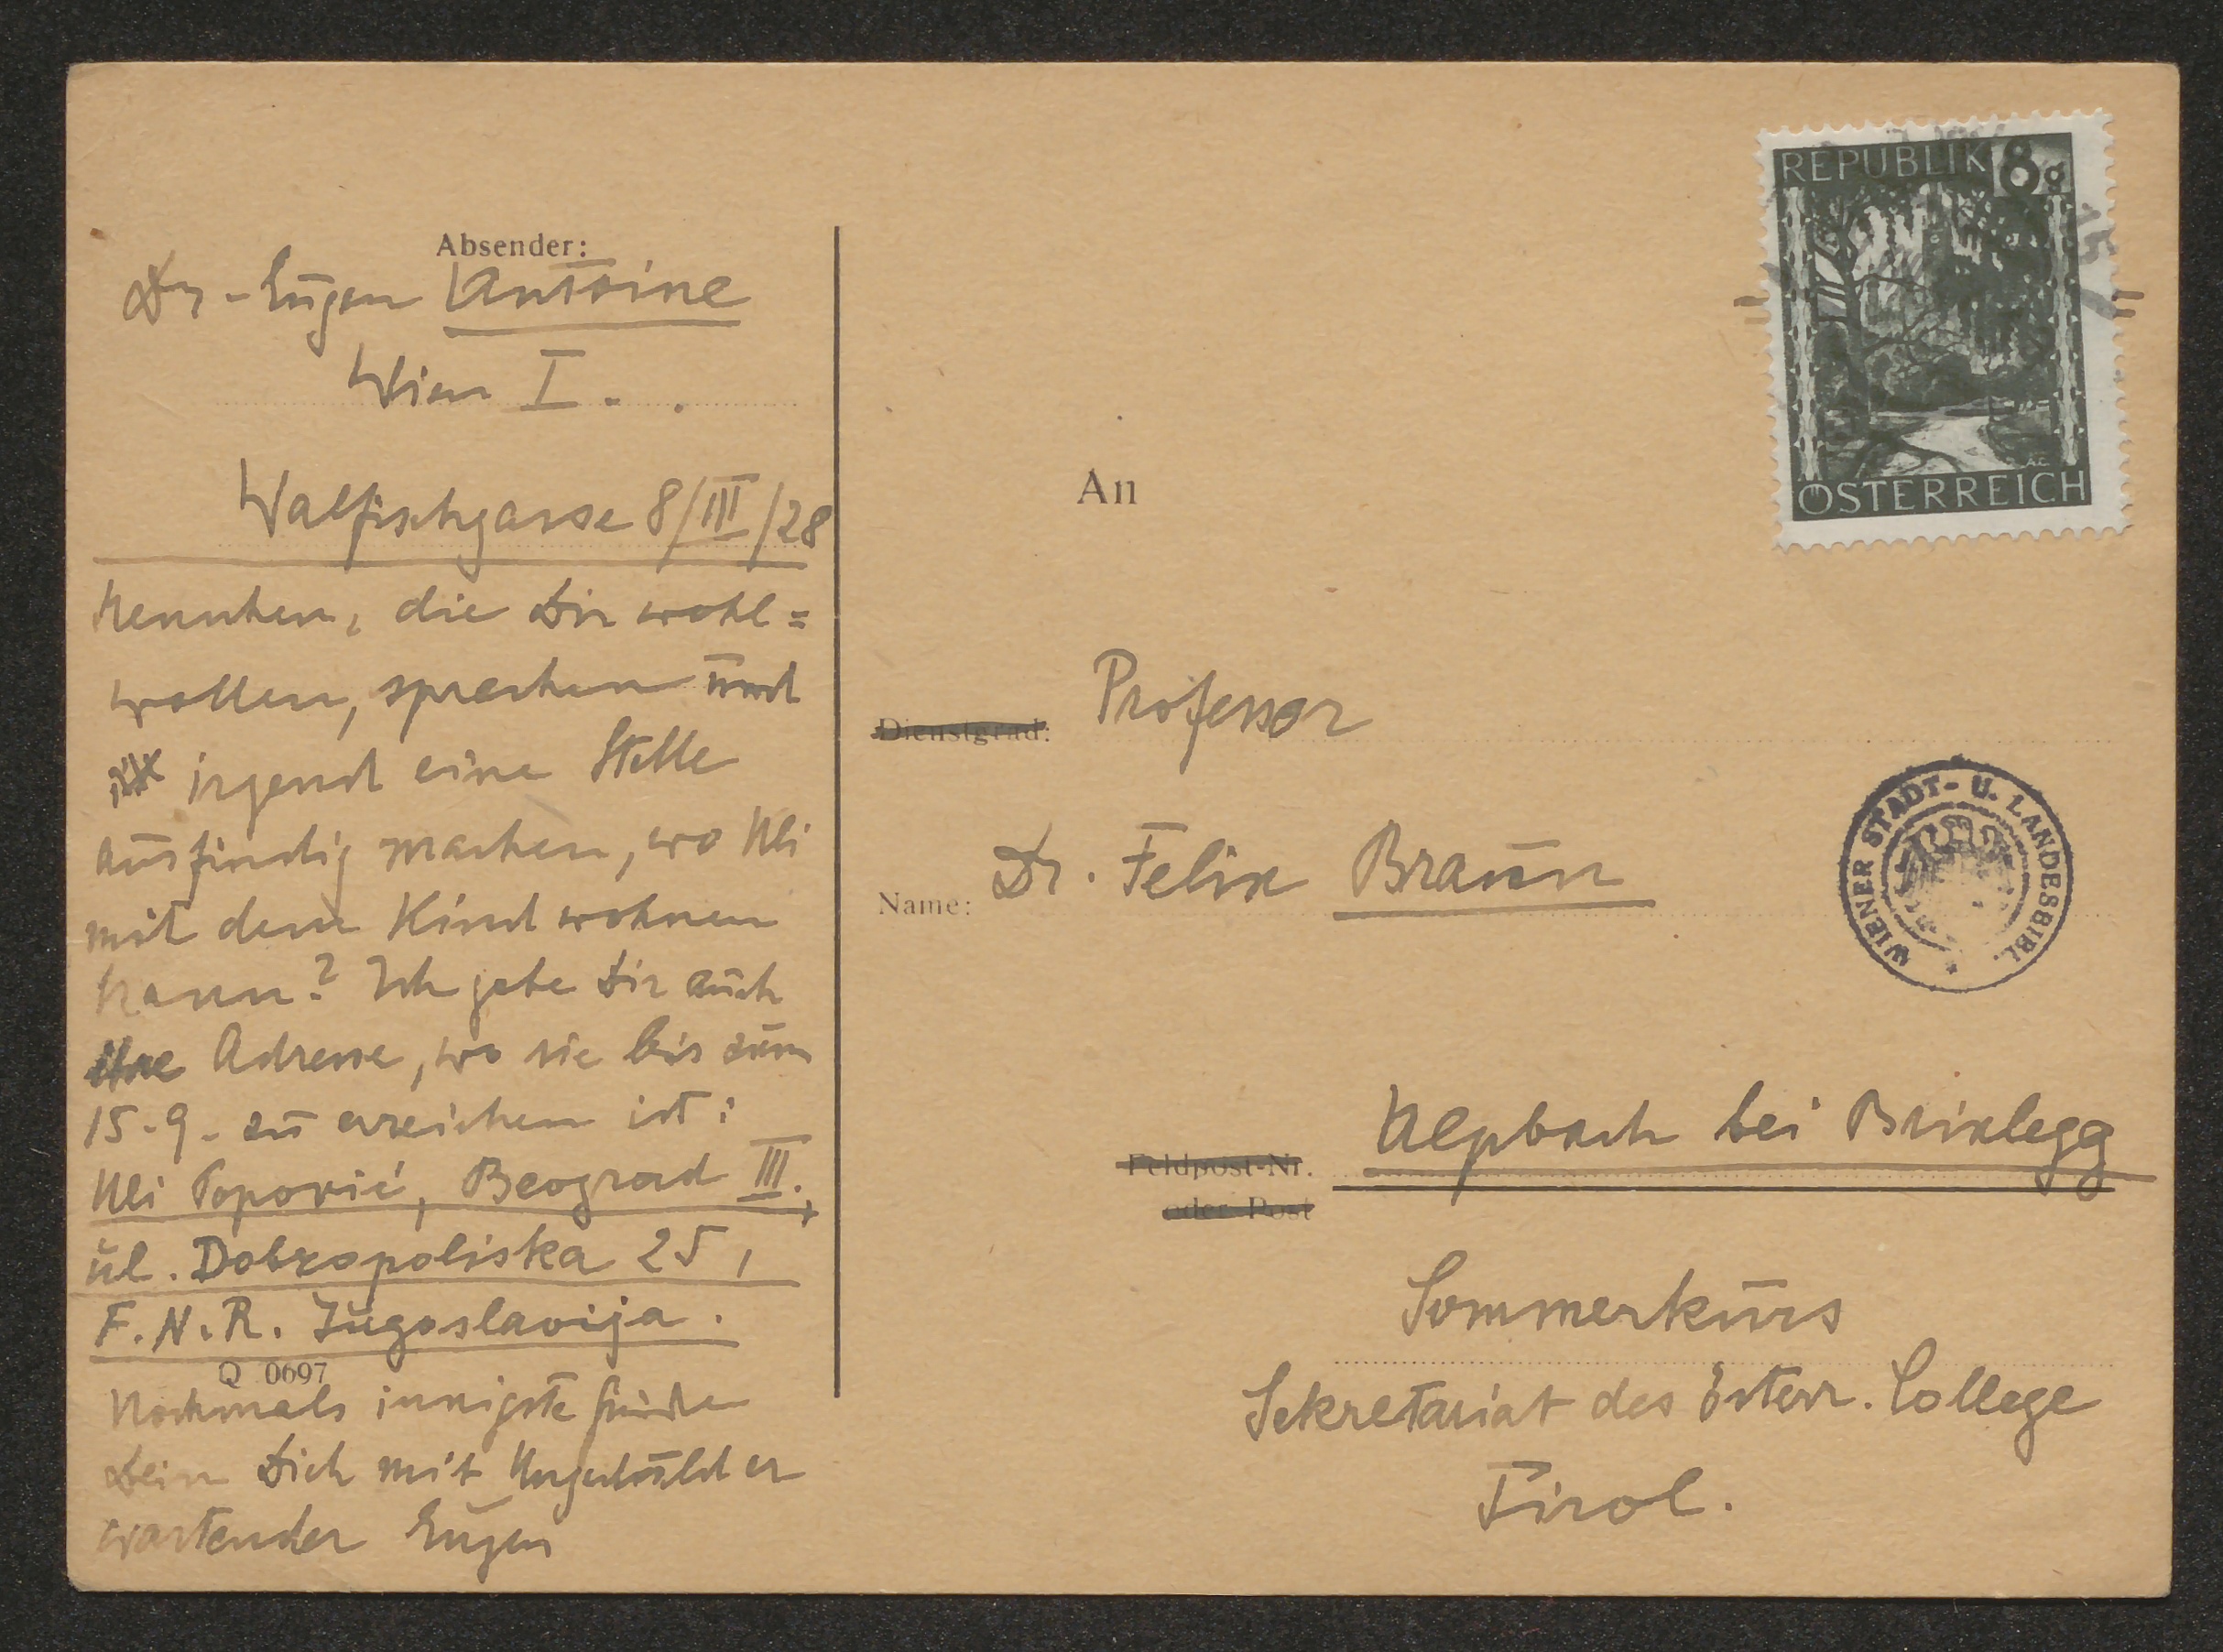 Absender:
Dr. Eugen Antoine
Wien I.
Walfischgasse 8/III/28
kennten, die Dir wohl=
wollen, sprechen und
irgend eine Stelle
ausfindig machen, wo Uli
mit dem Kind wohnen
kann? Ich gebe Dir auch
ihre Adresse, wo sie bis zum
15.9. zu erreichen ist:
Uli Popović, Beograd III.,
ul. Dobropoljska 25,
F.N.R. Jugoslavija.
Q 0697
Nochmals innigste Grüße
Dein Dich mit Ungeduld er
wartender Eugen
REPUBLIK 8g
ÖSTERREICH
An
Dienstgrad: Professor
Name: Dr. Felix Braun
WIENER STADT- U. LANDESBIBL.
Feldpost-Nr. Alpbach bei Brixlegg
oder Post
Sommerkurs
Sekretariat des österr. College
Tirol.